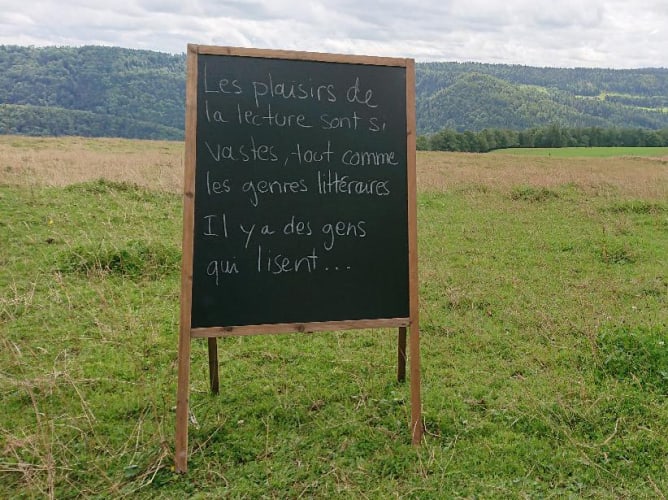 Les plaisirs de
la lecture sont si
vastes, tout comme
les genres littéraires
Il y a des gens
qui lisent...